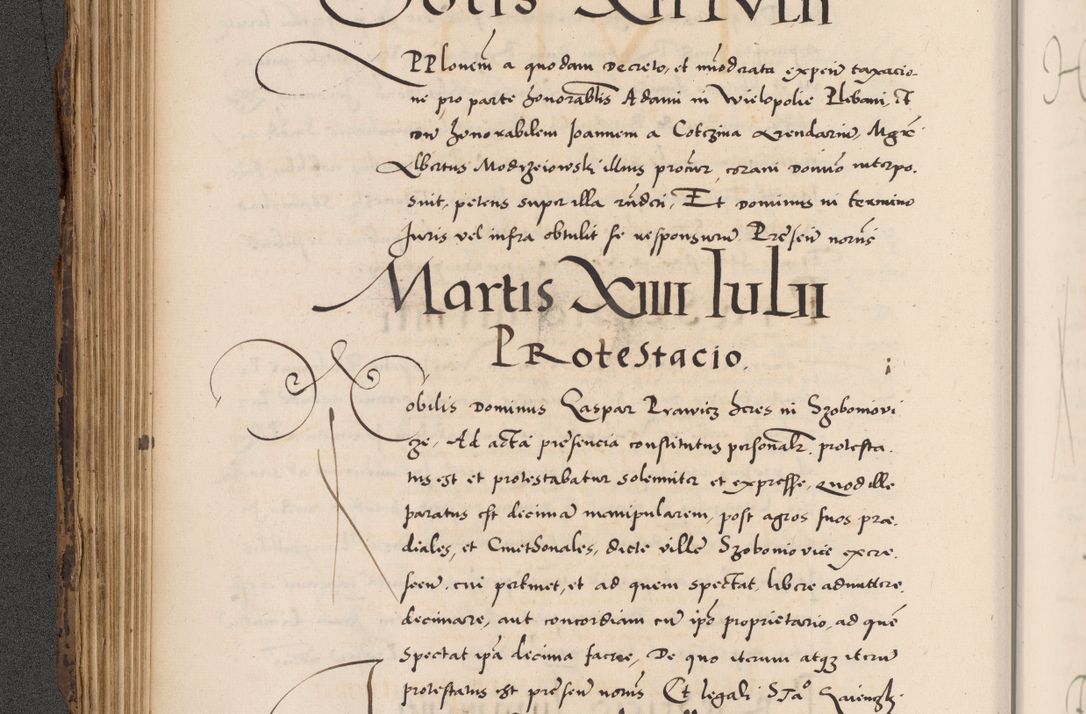 PPlonem a quodam Decreto, et moderata expen taxacio-
ne pro parte honorabilis Adami in Wielopolie Plebani, et
con honorabilem Joannem a Cotczina Arendariu Mgr
Albertus Modrzeiowski illius procur, coram domino interpo.
suit, petens super illa rnderi, Et Dominus in termino
Juris vel infra obtulit se responsuru Presen norus
Martis XIIII Iulii
PRotestacio.
Nobilis Dominus Caspar Prawicz heres in Szoboniovi
ze, Ad acta presencia constitutus personalr, protesta.
tus est et protestabatur solemniter et expresse, quod ille
paratus est decima manipularem, post agros suos præ.
diales, et Cmethonales, dicte ville Szoboniovice excre.
scen, cui pertinet, et ad quem spectat, libere admittere,
decimare, aut concordiam cu ipo proprietario, ad que
spectat ipa decima facere, De quo iterum atqz iteru
protestatus est presen norus Et legali Sta°